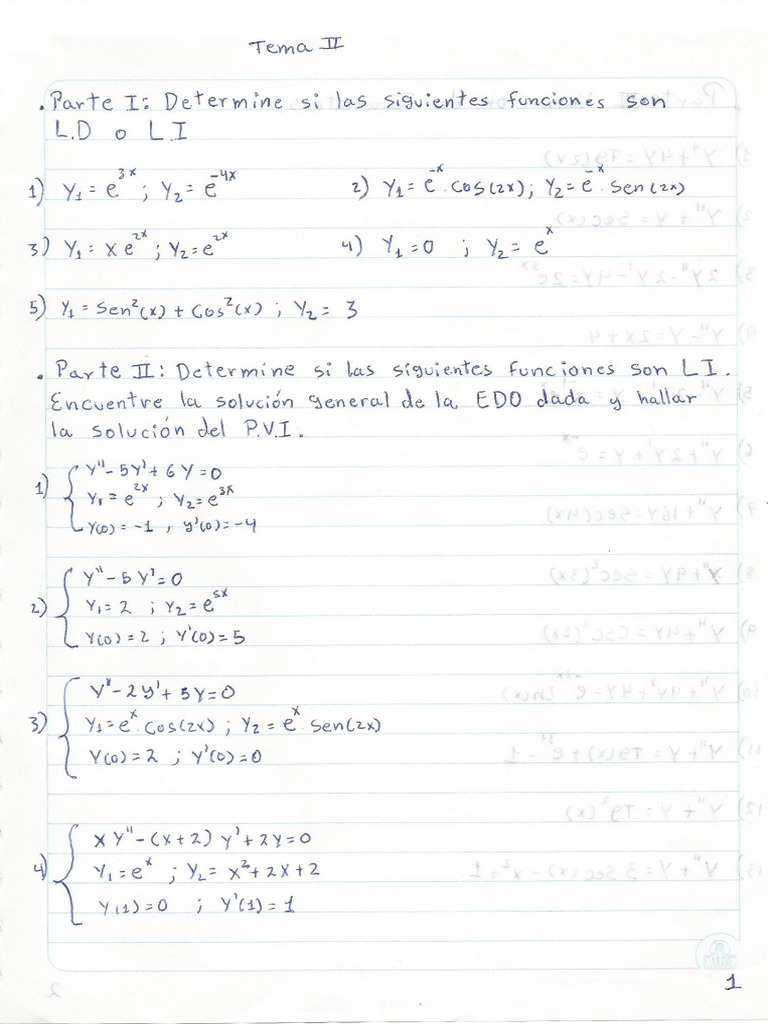 Tema II
. Parte I: Determine si las siguientes funciones son
L.D o L.I
1) Y₁ = e^{3x} ; Y₂ = e^{-4x} 2) Y₁ = e^{-x}. Cos(2x) ; Y₂ = e^{-x}. Sen(2x)
3) Y₁ = X e^{2x} ; Y₂ = e^{2x} 4) Y₁ = 0 ; Y₂ = e^{x}
5) Y₁ = Sen²(x) + Cos²(x) ; Y₂ = 3
. Parte II: Determine si las siguientes funciones son L I.
Encuentre la solución general de la EDO dada y hallar
la solución del P.V.I.
1) Y'' - 5Y' + 6Y = 0
Y₁ = e^{2x} ; Y₂ = e^{3x}
Y(0) = -1 , y'(0) = -4
2) Y'' - 5Y' = 0
Y₁ = 2 ; Y₂ = e^{5x}
Y(0) = 2 ; Y'(0) = 5
3) Y'' - 2Y' + 5Y = 0
Y₁ = e^{x}. Cos(2x) ; Y₂ = e^{x}. Sen(2x)
Y(0) = 2 ; Y'(0) = 0
4) X Y'' - (x+2) Y' + 2Y = 0
Y₁ = e^{x} ; Y₂ = X² + 2X + 2
Y(1) = 0 ; Y'(1) = 1
1